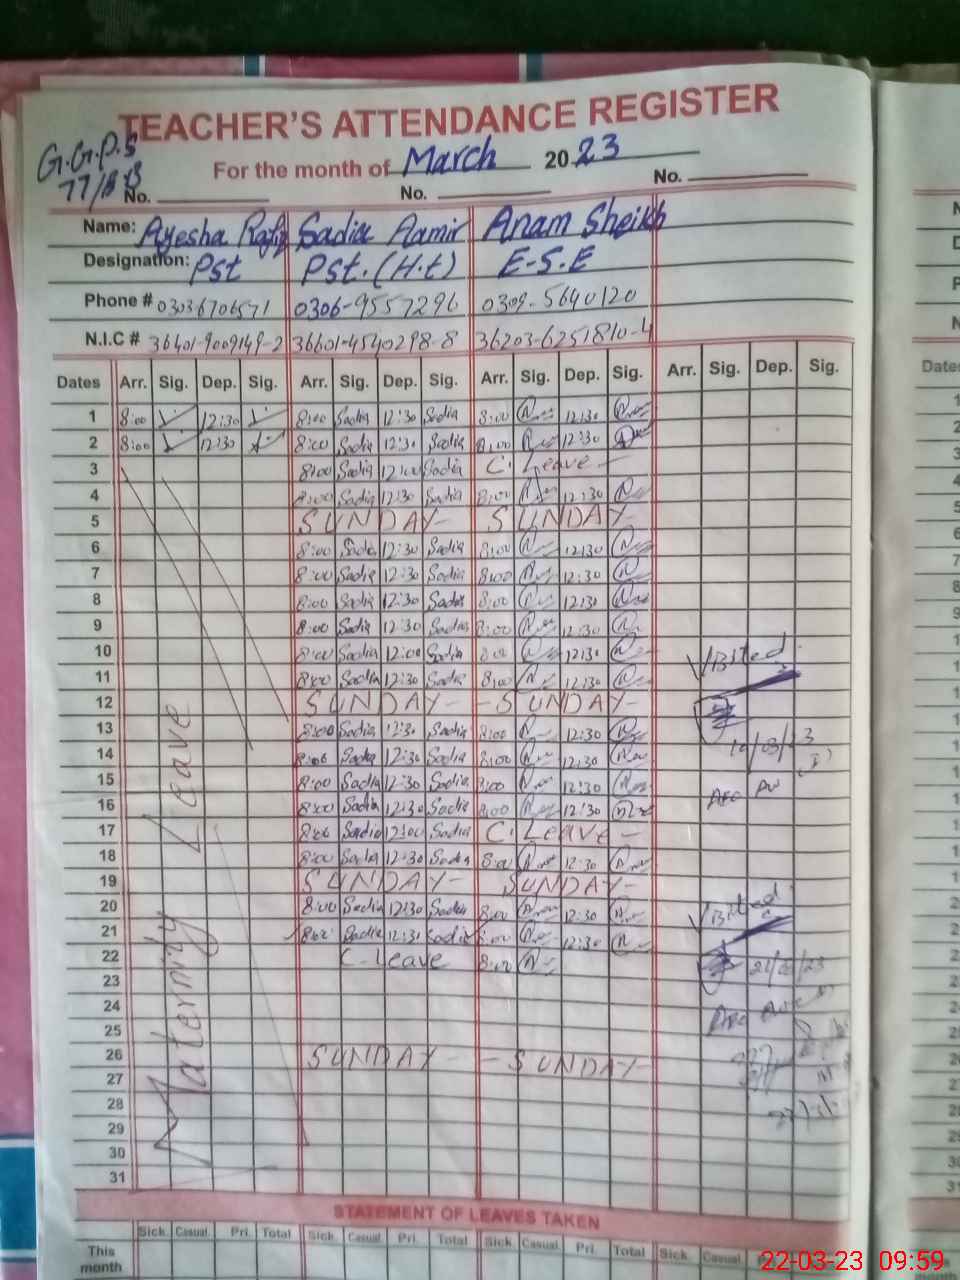 TEACHER'S ATTENDANCE REGISTER
G.G.P.S
For the month of March 2023
No. No. No.
Name: Ayesha Rafiq Sadia Aamir Anam Sheikh
Designation: Pst Pst. (H.t) E-S.E
Phone # 03036706571 0306-9557296 0309-5640120
N.I.C # 36401-9009149-2 36601-4540298-8 36203-6251810-4
Dates Arr. Sig. Dep. Sig. Arr. Sig. Dep. Sig. Arr. Sig. Dep. Sig. Arr. Sig. Dep. Sig.
1 8:00 12:30 8:00 Sadia 12:30 Sadia 8:00 12:30
2 8:00 12:30 8:00 Sadia 12:30 Sadia 8:00 12:30
3 8:00 Sadia 12:00 Sadia C. Leave -
4 8:00 Sadia 12:30 Sadia 8:00 12:30
5 SUNDAY- SUNDAY-
6 8:00 Sadia 12:30 Sadia 8:00 12:30
7 8:00 Sadia 12:30 Sadia 8:00 12:30
8 8:00 Sadia 12:30 Sadia 8:00 12:30
9 8:00 Sadia 12:30 Sadia 8:00 12:30
10 8:00 Sadia 12:00 Sadia 8:00 12:30
11 8:00 Sadia 12:30 Sadia 8:00 12:30
12 SUNDAY- -SUNDAY-
13 8:00 Sadia 12:30 Sadia 8:00 12:30
14 8:00 Sadia 12:30 Sadia 8:00 12:30
15 8:00 Sadia 12:30 Sadia 8:00 12:30
16 8:00 Sadia 12:30 Sadia 8:00 12:30
17 8:00 Sadia 12:00 Sadia C. Leave -
18 8:00 Sadia 12:30 Sadia 8:00 12:30
19 SUNDAY- SUNDAY-
20 8:00 Sadia 12:30 Sadia 8:00 12:30
21 8:00 Sadia 12:30 Sadia 8:00 12:30
22 C-Leave 8:00
23
24
25
26 SUNDAY- -SUNDAY-
27
28
29
30
31
Maternity Leave
Visited
Visited
STATEMENT OF LEAVES TAKEN
Sick. Casual. Pri. Total Sick. Casual. Pri. Total Sick. Casual. Pri. Total Sick. Casual.
This month
22-03-23 09:59